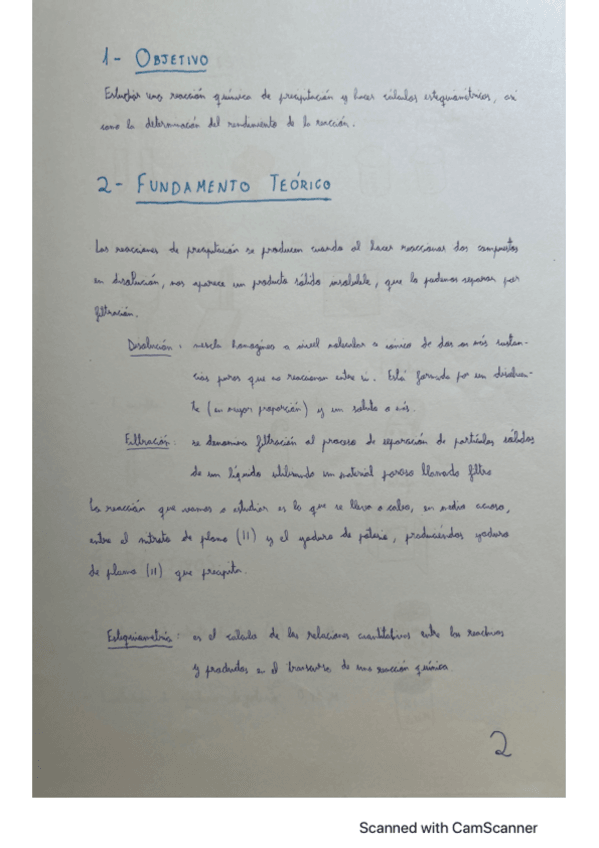 1- OBJETIVO
Estudiar una reacción química de precipitación y hacer cálculos estequiométricos, así
como la determinación del rendimiento de la reacción.
2- FUNDAMENTO TEÓRICO
Las reacciones de precipitación se producen cuando al hacer reaccionar dos compuestos
en disolución, nos aparece un producto sólido insoluble, que lo podemos separar por
filtración.
Disolución: mezcla homogénea a nivel molecular o iónico de dos o más sustan-
cias puras que no reaccionan entre sí. Está formada por un disolven-
te (en mayor proporción) y un soluto o más.
Filtración: se denomina filtración al proceso de separación de partículas sólidas
de un líquido utilizando un material poroso llamado filtro
La reacción que vamos a estudiar es la que se lleva a cabo, en medio acuoso,
entre el nitrato de plomo (II) y el yoduro de potasio, produciéndose yoduro
de plomo (II) que precipita.
Estequiometría: es el cálculo de las relaciones cuantitativas entre los reactivos
y productos en el transcurso de una reacción química
2
Scanned with CamScanner